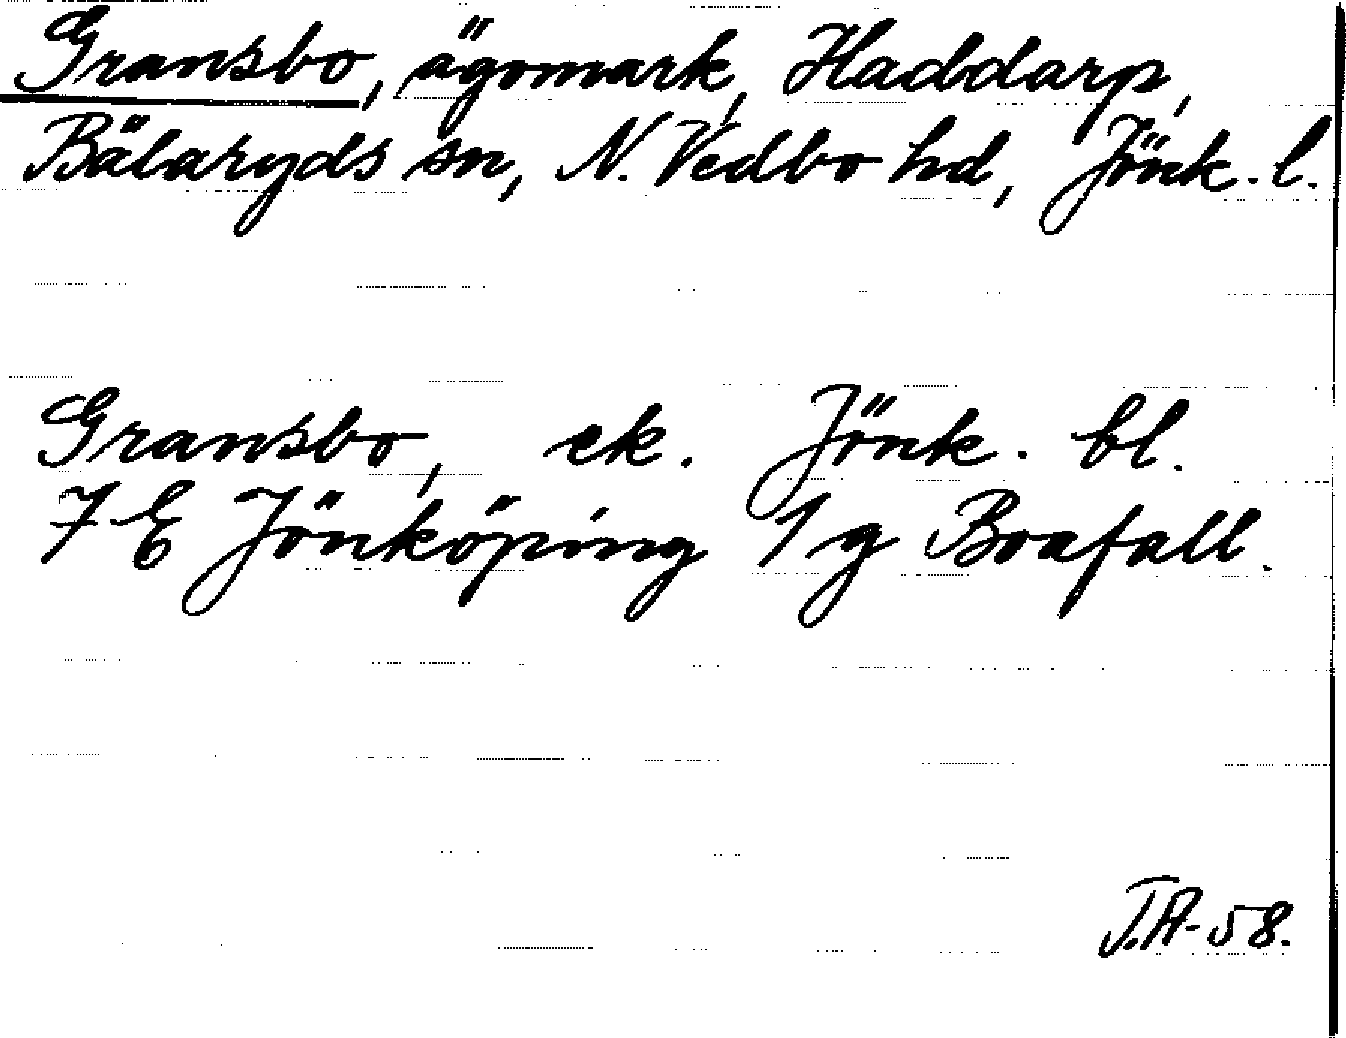 Gransbo, ägomark, Haddarp,
Bälaryds sn, N. Vedbo hd, Jönk. l.
Gransbo, ek. Jönk. bl.
7 E Jönköping 1 g Boafall.
J.A-58.